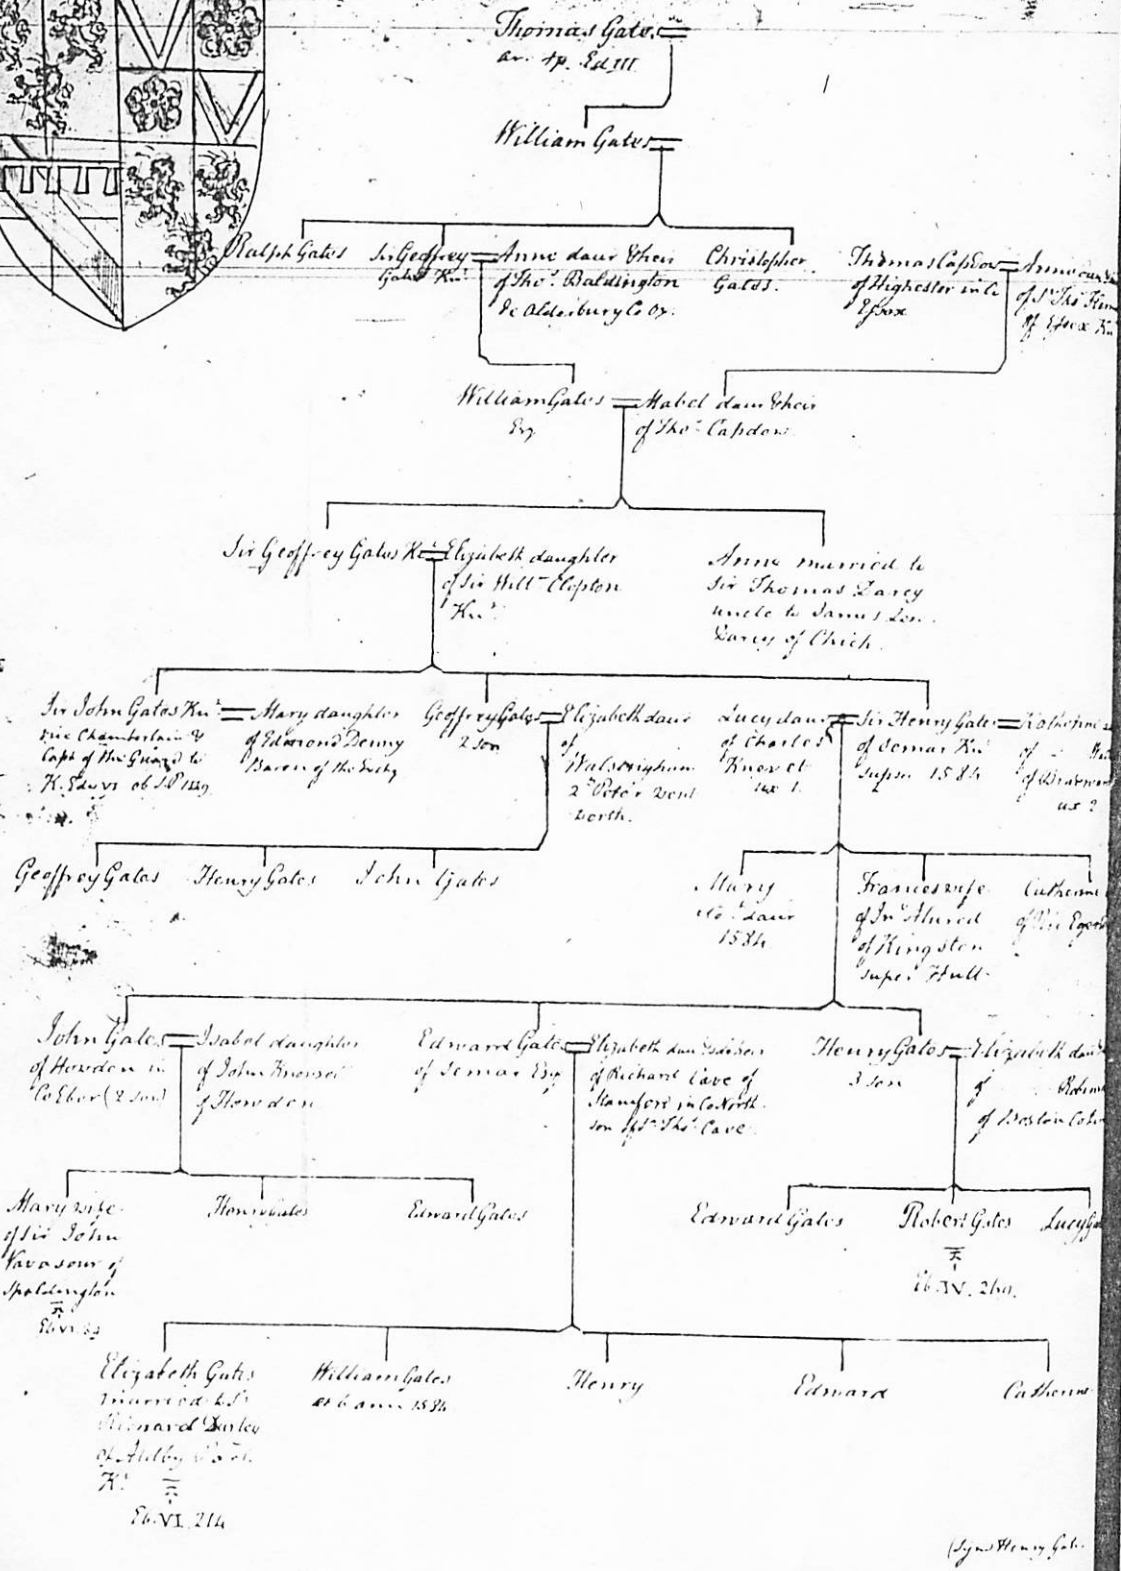 Thomas Gates
ar. tp. Ed III
William Gates
Ralph Gates
Sir Geoffrey
Gates Knt
Anne daur & heir
of Thos. Baldington
de Alderbury Co Ox.
Christopher
Gates.
Thomas Capdow
of Highester in Co
Essex
Anne daur
of Sr Thos
of Essex Kn
William Gates
Esq
Mabel daur & heir
of Thos Capdow
Sir Geoffrey Gates Kt
Elizabeth daughter
of Sir Willm Clopton
Knt
Anne married to
Sir Thomas Darcy
uncle to James Lord
Darcy of Chich
Sir John Gates Knt
vice Chamberlain &
Capt of the Guard to
K. Edw VI ob S.P.
Mary daughter
of Edmond Denny
Baron of the Exchq
Geoffrey Gates
2 son
Elizabeth daur
of
Walsingham
2d Peter Went
worth.
Lucy daur
of Charles
Knevet
ux 1.
Sir Henry Gates
of Semar Kn
supse 1584
Katherine
of
of
ux 2
Geoffrey Gates
Henry Gates
John Gates
Mary
daur
1584
Frances wife
of Jno Alured
of Kingston
super Hull
Catherine
of
John Gates
of Howden in
Co Ebor (2 son)
Isabel daughter
of John
of Howden
Edward Gates
of Semar Esq
Elizabeth daur
of Richard Cave of
Stamford in Co North
son of Sr Thos Cave
Henry Gates
3 son
Elizabeth daur
of
of Boston Co
Mary wife
of Sir John
Vavasour of
Spaldington
Eb. VI.
Henry Gates
Edward Gates
Edward Gates
Robert Gates
Eb. IV.
Lucy Ga
Elizabeth Gates
married to Sr
Richard Darley
of Aldby
Kt
Eb. VI. 214
William Gates
1584
Henry
Edward
Catherine
(Sigd Henry Gate